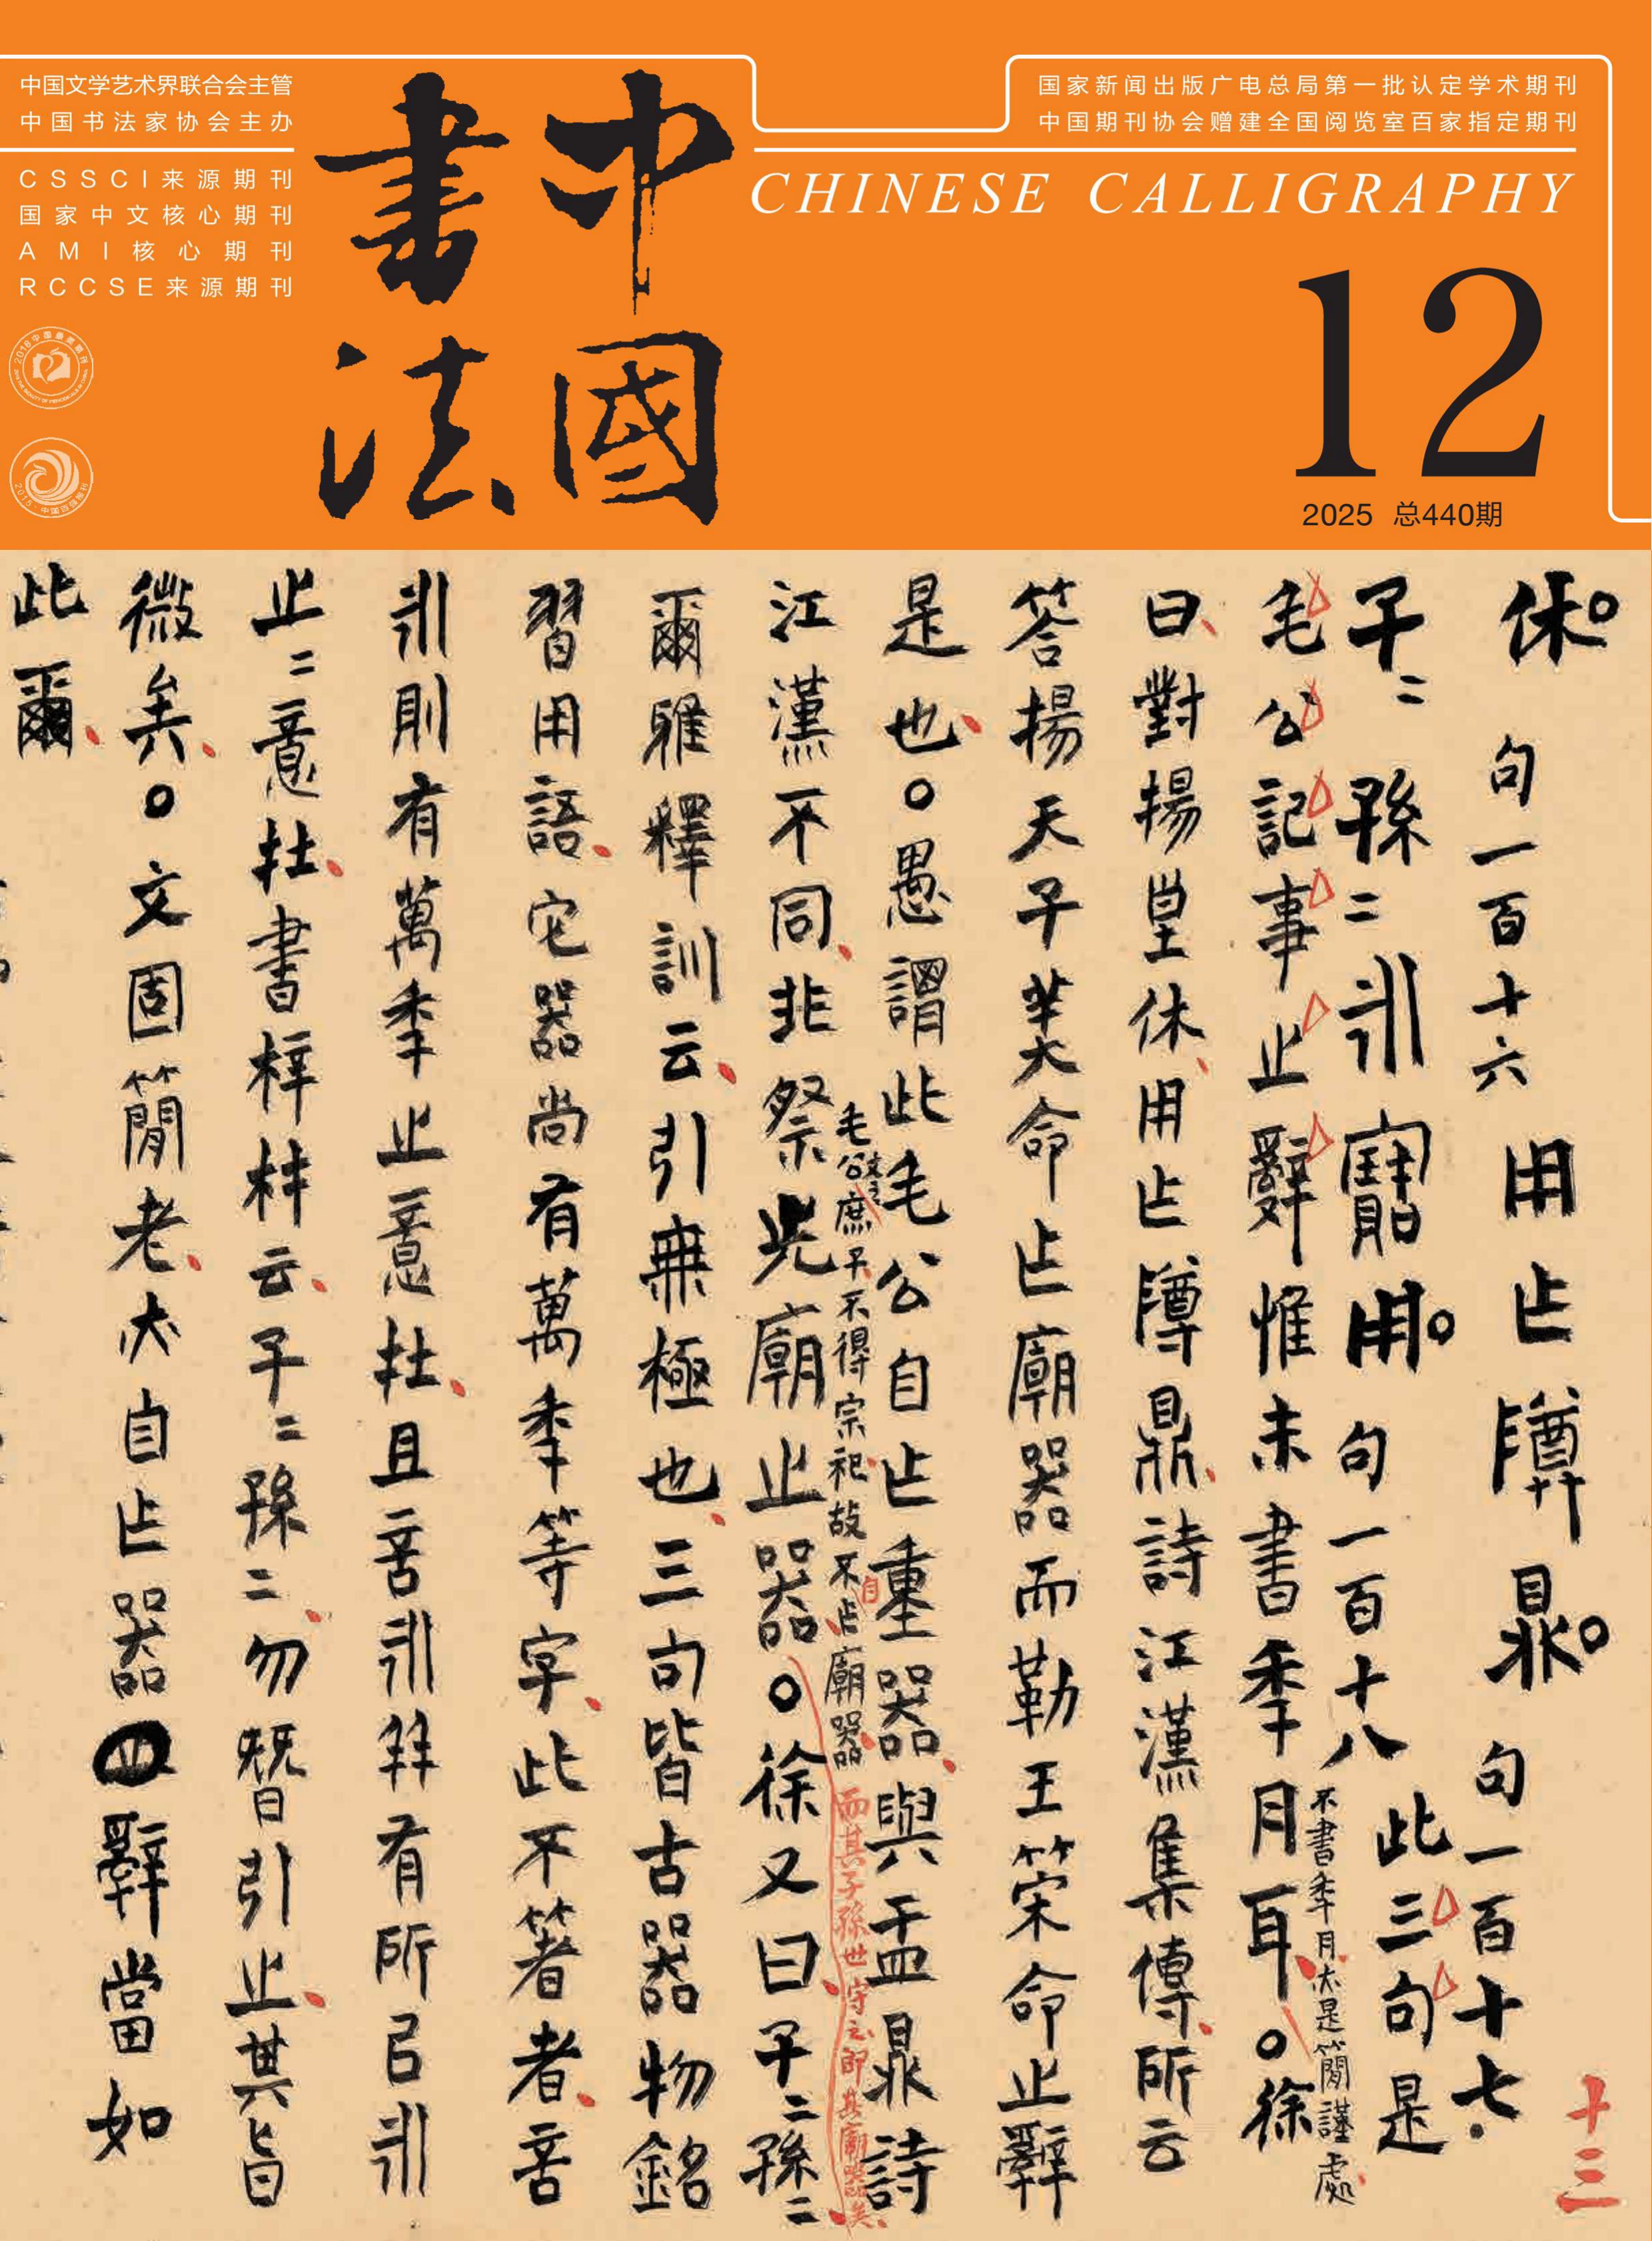 中国文学艺术界联合会主管
中国书法家协会主办
CSSCI来源期刊
国家中文核心期刊
AMI核心期刊
RCCSE来源期刊
中國
書法
国家新闻出版广电总局第一批认定学术期刊
中国期刊协会赠建全国阅览室百家指定期刊
CHINESE CALLIGRAPHY
12
2025 总440期
十三
休。句一百十六 用乍䵼鼎。句一百十七
子二孫二永寶用。句一百十八 此三句是
毛公記事止辭惟未書秊月耳。徐
不書秊月亦是簡謹處
曰對揚皇休用乍䵼鼎詩江漢集傳所云
答揚天子茣命乍廟器而勒王策命止辭
是也。愚謂此毛公自乍重器與盂鼎詩
毛公庶子不得宗祀故不自乍廟器而其子孫世守之即其廟器矣
江漢不同非祭先廟止器。徐又曰子二孫二
爾雅釋訓云引無極也三句皆古器物銘
習用語它器尚有萬秊等字此不箸者言
永則有萬秊止意在且言永羊有所㠯永
止二意在書梓材云子二孫二勿替引止其旨
微矣。文固簡老亦自乍器止辭當如
此爾